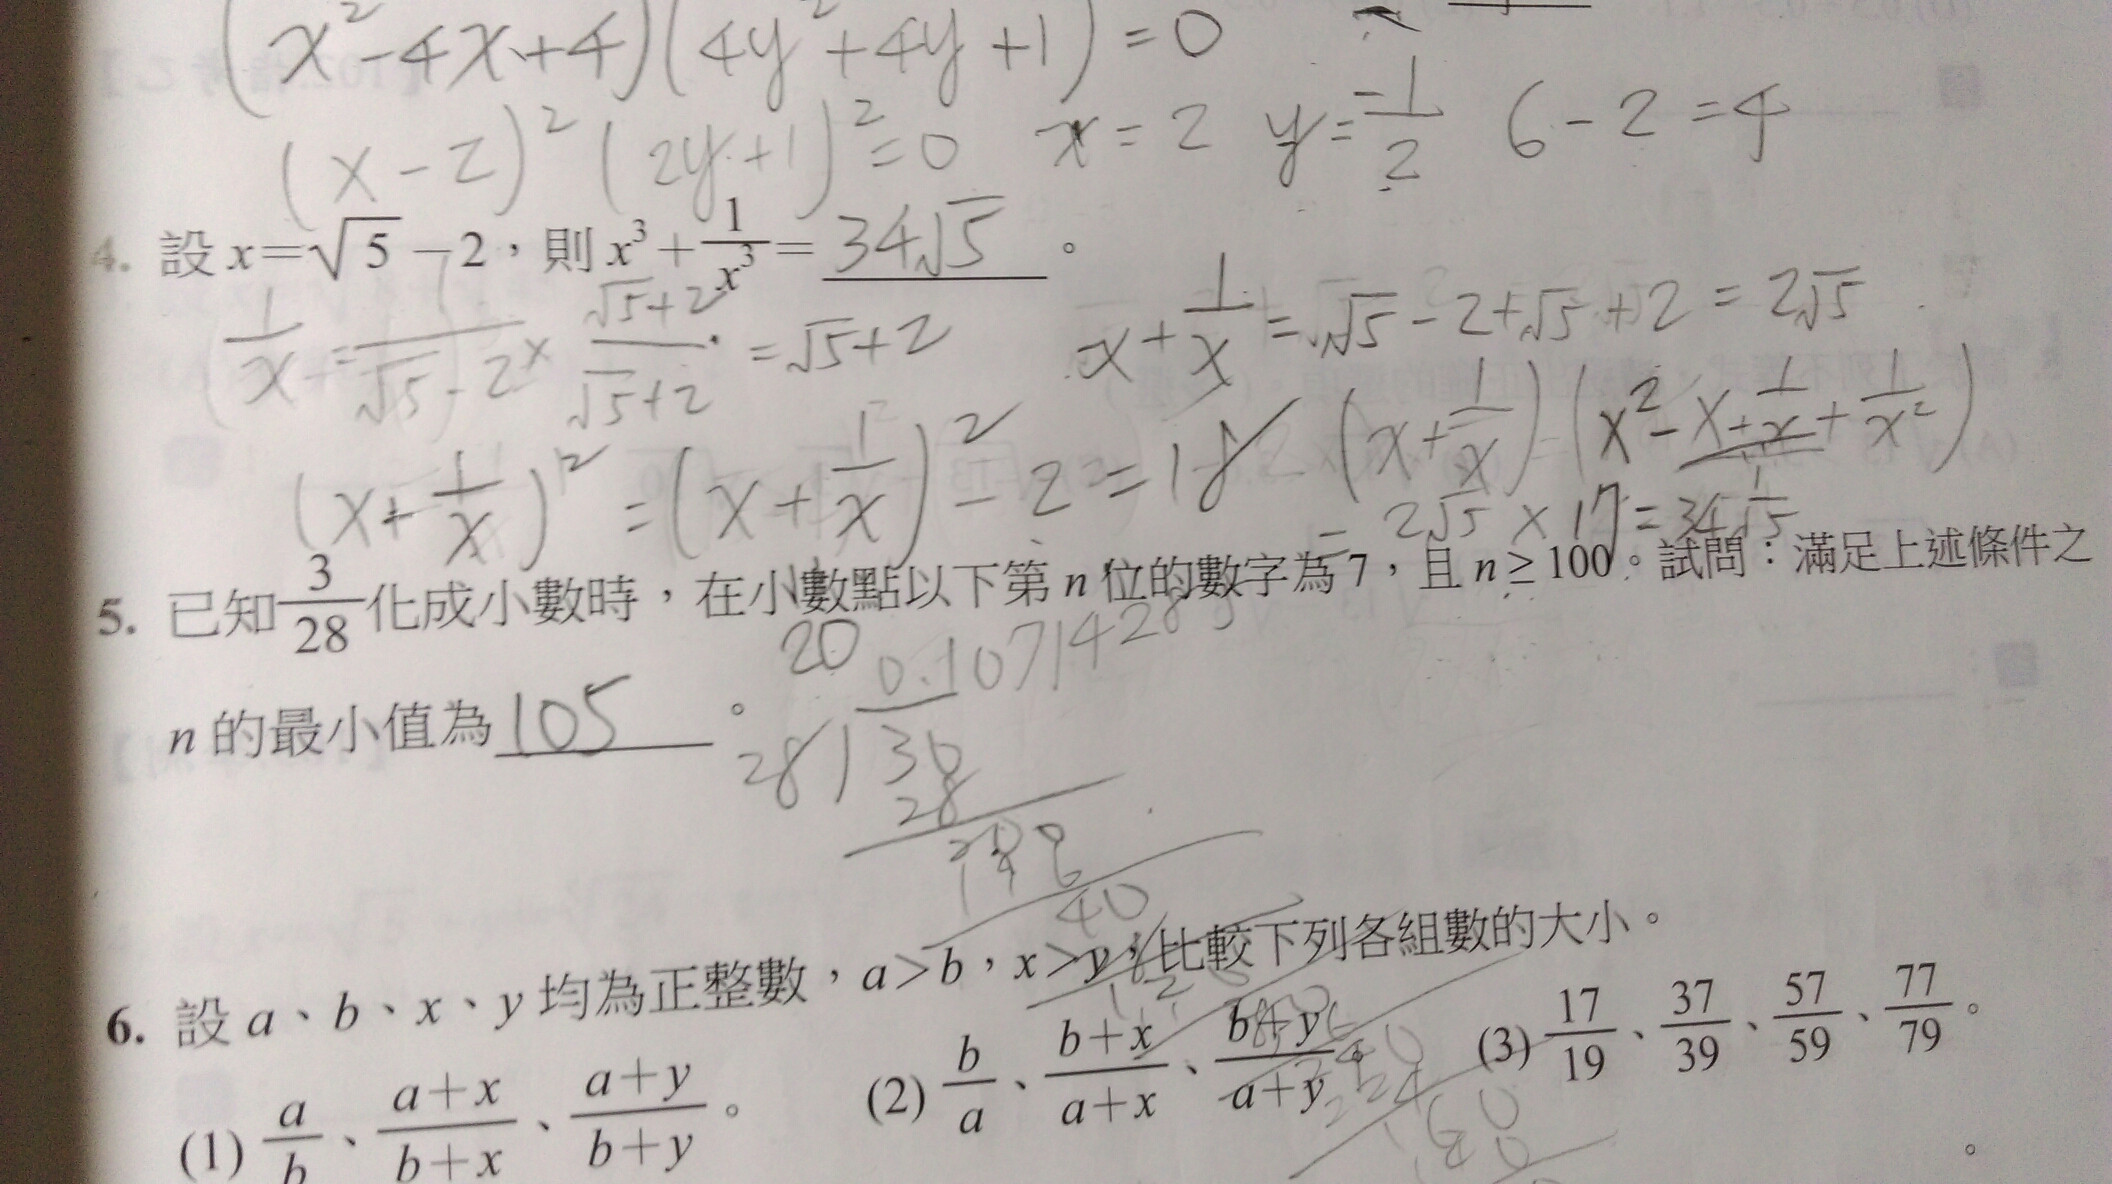 (x²-4x+4)(4y²+4y+1)=0
(x-2)²(2y+1)²=0 x=2 y=-1/2 6-2=4
4. 設x=√5-2，則x³+1/x³=34√5。
1/x=1/(√5-2)×(√5+2)/(√5+2)=√5+2 x+1/x=√5-2+√5+2=2√5
(x+1/x)²=(x+1/x)²-2=18 (x+1/x)(x²-x+1/x+1/x²)
=2√5×17=34√5
5. 已知3/28化成小數時，在小數點以下第n位的數字為7，且n≥100。試問：滿足上述條件之
20 0.10714285
n的最小值為105。
28)30
28
40
6. 設a、b、x、y均為正整數，a>b，x>y，比較下列各組數的大小。
(1) a/b、(a+x)/(b+x)、(a+y)/(b+y)。 (2) b/a、(b+x)/(a+x)、(b+y)/(a+y)。 (3) 17/19、37/39、57/59、77/79。